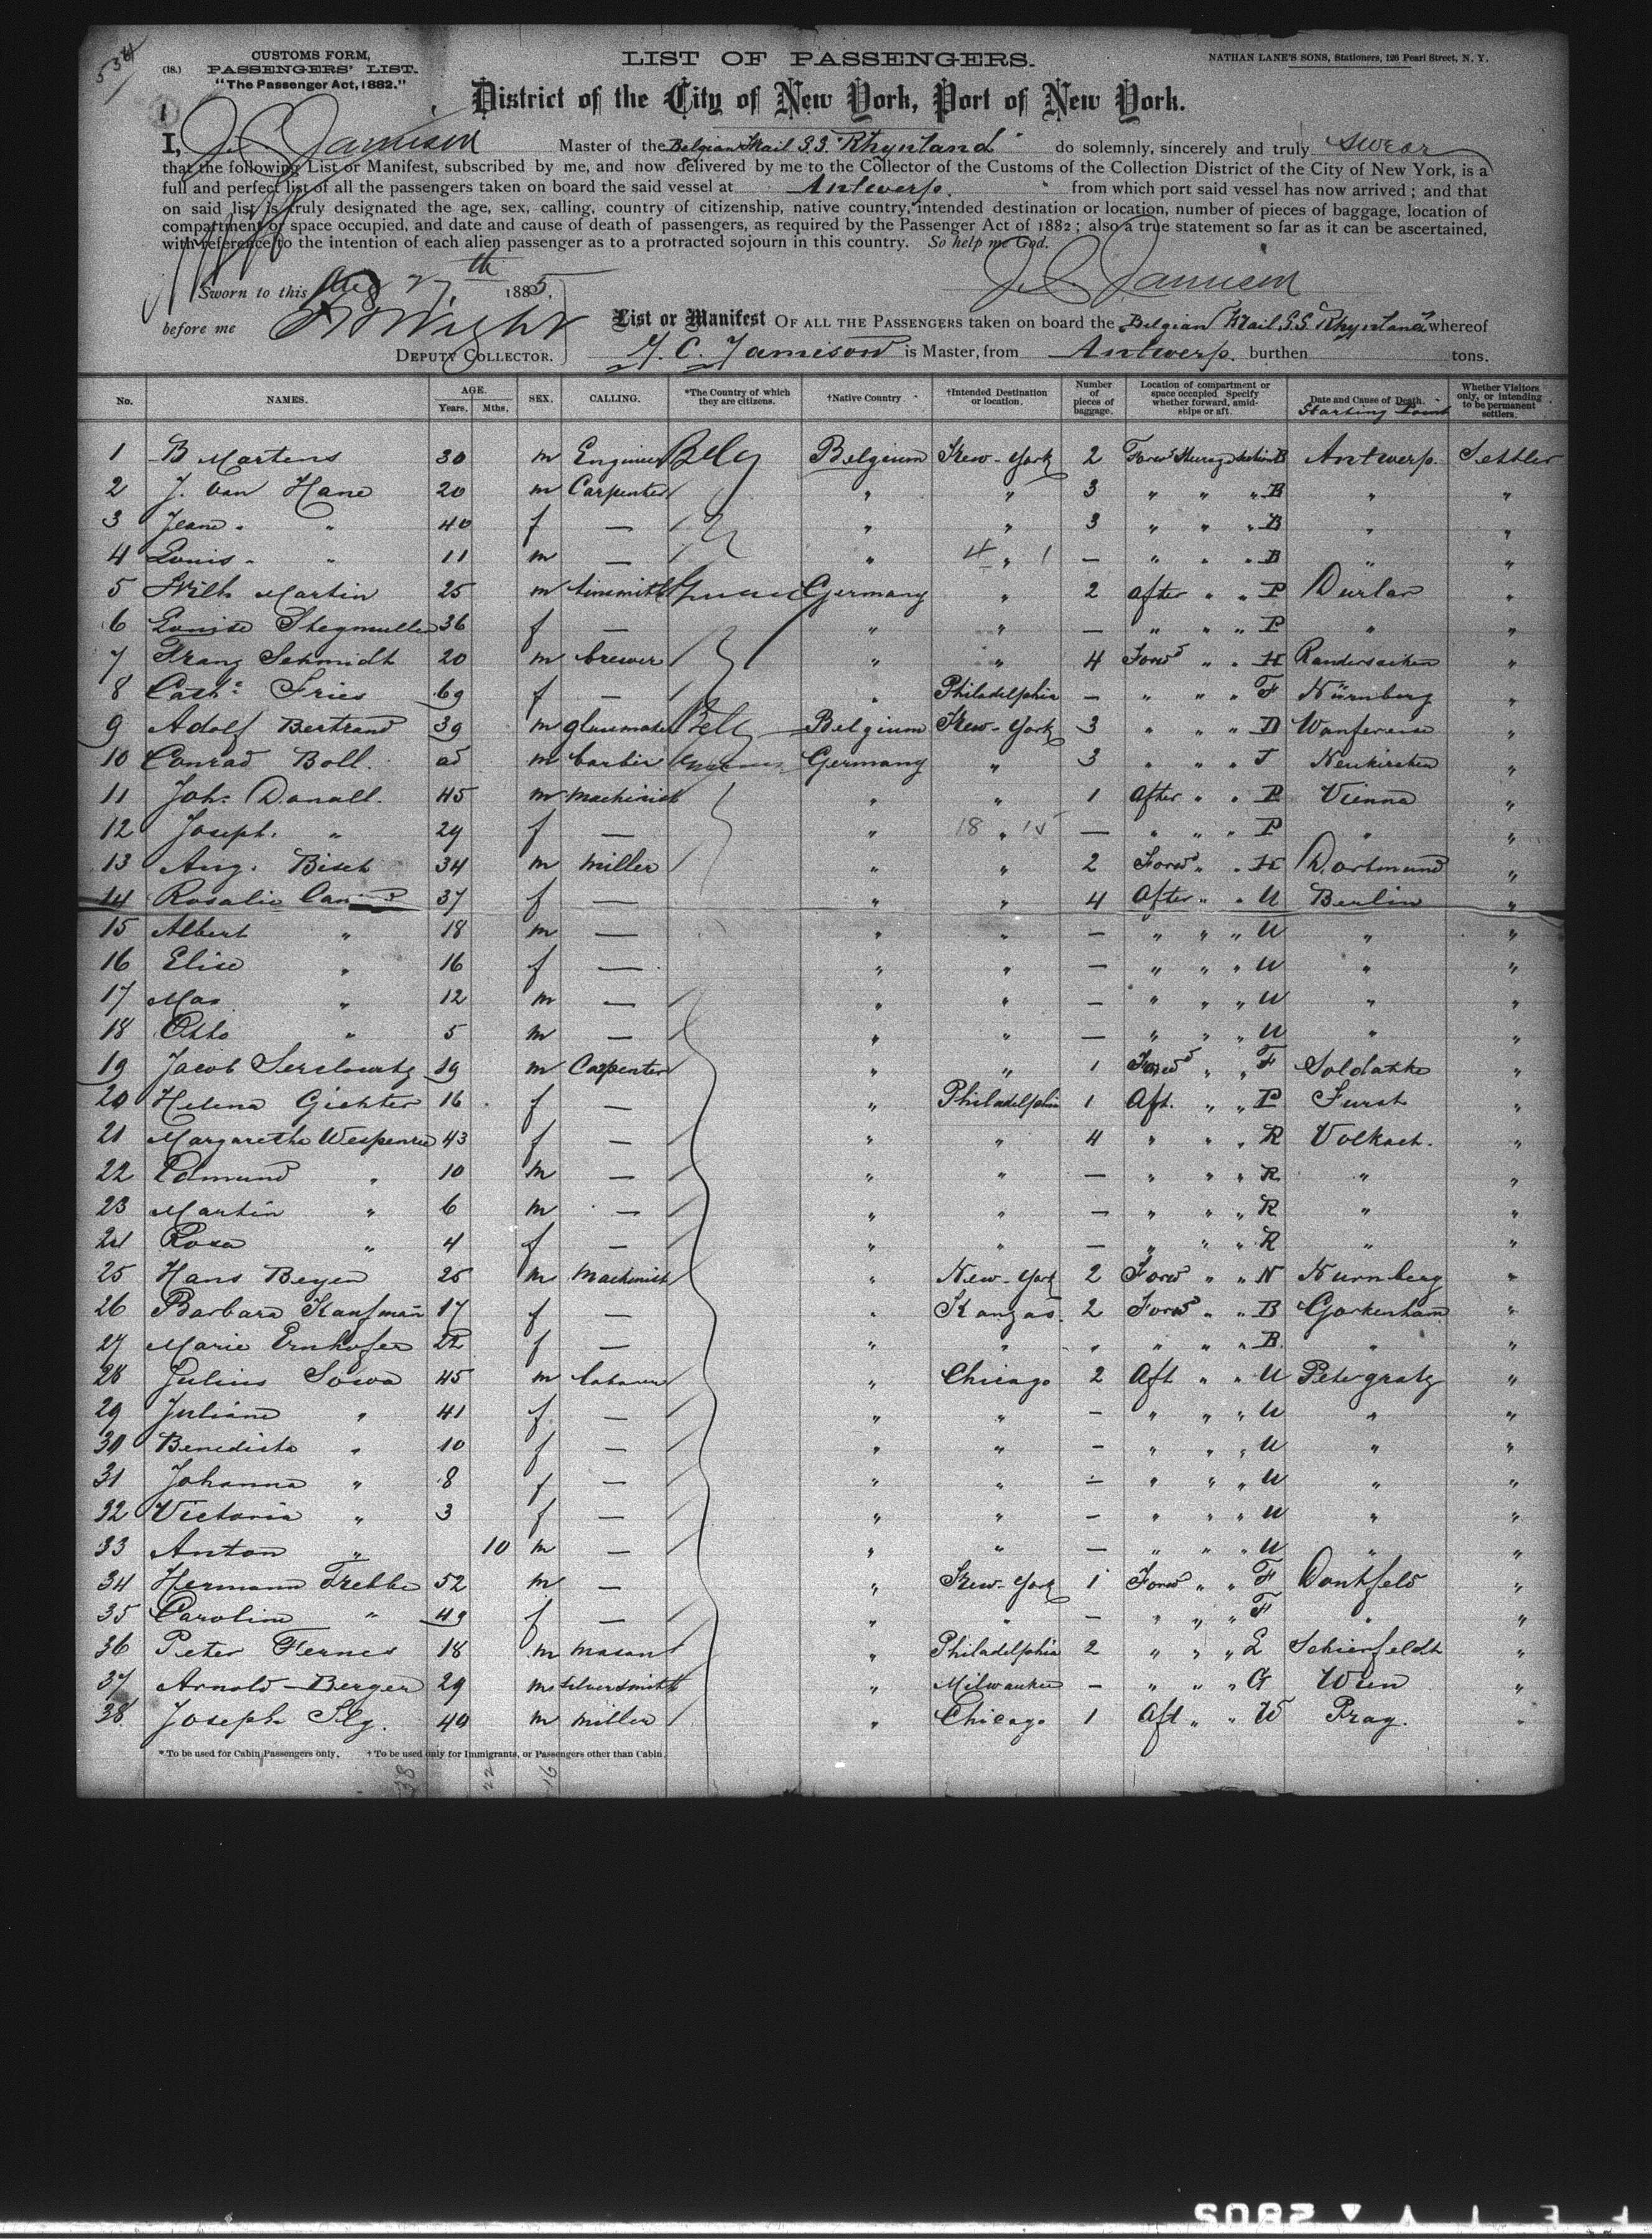 534
CUSTOMS FORM,
(18.) PASSENGERS' LIST.
"The Passenger Act, 1882."
LIST OF PASSENGERS.
NATHAN LANE'S SONS, Stationers, 126 Pearl Street, N. Y.
District of the City of New York, Port of New York.
I, J. C. Jamison Master of the Belgian Mail S.S. "Rhynland" do solemnly, sincerely and truly swear
that the following List or Manifest, subscribed by me, and now delivered by me to the Collector of the Customs of the Collection District of the City of New York, is a
full and perfect list of all the passengers taken on board the said vessel at Antwerp. from which port said vessel has now arrived; and that
on said list is truly designated the age, sex, calling, country of citizenship, native country, intended destination or location, number of pieces of baggage, location of
compartment or space occupied, and date and cause of death of passengers, as required by the Passenger Act of 1882; also a true statement so far as it can be ascertained,
with reference to the intention of each alien passenger as to a protracted sojourn in this country. So help me God.
Sworn to this 27th 1885, J. C. Jamison
before me Wight List or Manifest OF ALL THE PASSENGERS taken on board the Belgian Mail S.S. Rhynland whereof
DEPUTY COLLECTOR. J. C. Jamison is Master, from Antwerp. burthen tons.
No. NAMES. AGE. Years. Mths. SEX. CALLING. *The Country of which they are citizens. †Native Country. †Intended Destination or location. Number of pieces of baggage. Location of compartment or space occupied Specify whether forward, amidships or aft. Date and Cause of Death. Starting Point Whether Visitors only, or intending to be permanent settlers.
1 B Martens 30 m Engineer Belg Belgium New-York 2 Forwd Steerage Section B Antwerp. Settler
2 J. Van Hane 20 m Carpenter " " 3 " " " B " "
3 Jeane " 40 f — " " 3 " " " B " "
4 Louis " 11 m — " " — " " " B " "
5 Wilh Martin 25 m tinsmith Germany " 2 after " " P Durlar "
6 Louise Stegmuller 36 f — " " — " " " P " "
7 Franz Schmidt 20 m brewer " " 4 Forwd " " H Randersacken "
8 Cath. Fries 69 f — " Philadelphia — " " " F Nürnberg "
9 Adolf Bertrand 39 m glassmaker Belg Belgium New-York 3 " " " D Wanferee "
10 Conrad Boll. m Germany " 3 " " " T Neukirchen "
11 Joh. Donall. 45 m machinist " " 1 After " " P Vienna "
12 Joseph. " 29 f — " " — " " " P " "
13 Aug. Bisch 34 m miller " " 2 Forwd " " H Dortmund "
14 Rosalie 37 f — " " 4 After " " U Berlin "
15 Albert " 18 m — " " — " " " U " "
16 Elise " 16 f — " " — " " " U " "
17 Max " 12 m — " " — " " " U " "
18 Otto " 5 m — " " — " " " U " "
19 Jacob 19 m Carpenter " " 1 Forwd " " F Soldatke "
20 Helena Gichter 16 f — " Philadelphia 1 Aft. " " P Furst "
21 Margarethe 43 f — " " 4 " " " R Volkach. "
22 Edmund " 10 m — " " — " " " R " "
23 Martin " 6 m — " " — " " " R " "
24 Rosa " 4 f — " " — " " " R " "
25 Hans Beyer 25 m machinist " New-York 2 Forwd " " N Nurnberg "
26 Barbara Kaufman 17 f — " Kanzas. 2 Forwd " " B Gorkenham "
27 Marie Ernhofer 22 f — " " " " " " B " "
28 Julius Sowa 45 m labourer " Chicago 2 Aft " " U Petergratz "
29 Juliane " 41 f — " " — " " " U " "
30 Benedicta " 10 f — " " — " " " U " "
31 Johanna " 8 f — " " — " " " U " "
32 Victoria " 3 f — " " — " " " U " "
33 Anton " 10 m — " " — " " " U " "
34 Hermann Trebbe 52 m — " New-York 1 Forwd " " F Dontfeld "
35 Caroline " 49 f — " " — " " " F " "
36 Peter Fernes 18 m mason " Philadelphia 2 " " " L Schierfeldt "
37 Arnold Berger 29 m silversmith " Milwaukee — " " " G Wien "
38 Joseph Ilg. 40 m miller " Chicago 1 Aft " " W Prag. "
*To be used for Cabin Passengers only. †To be used only for Immigrants, or Passengers other than Cabin.
38 22 16